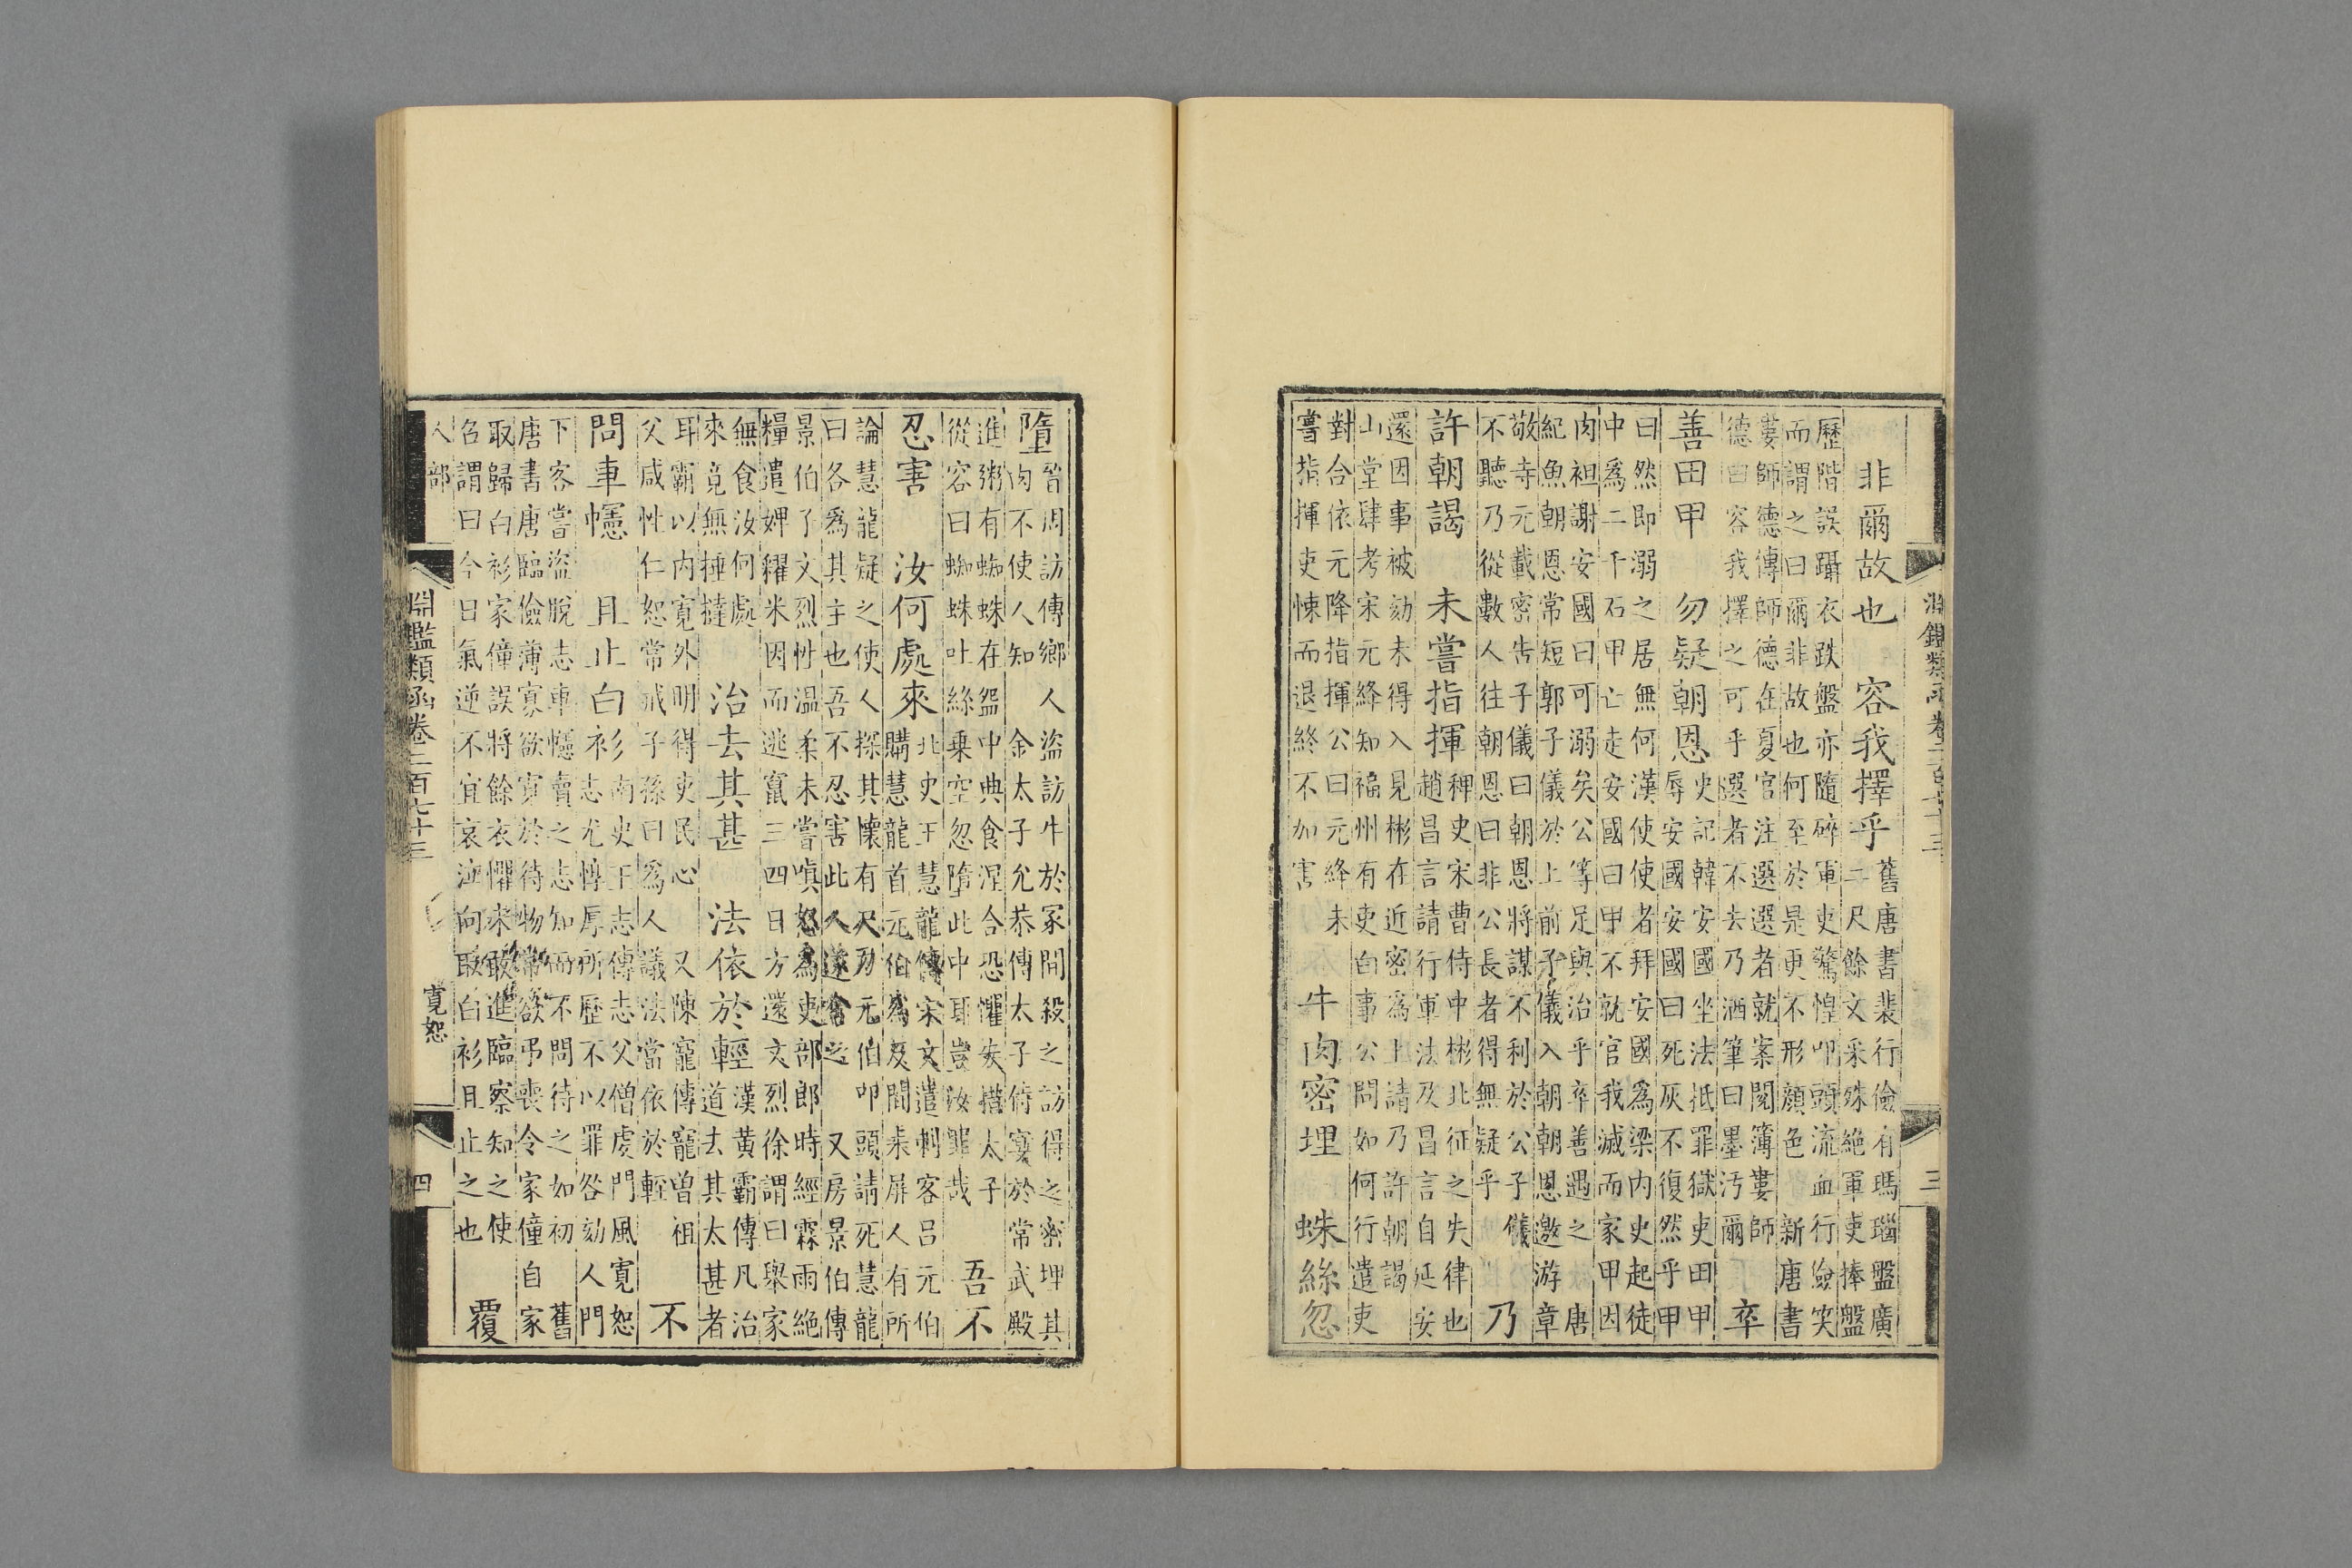 淵鑑類函卷二百七十三 三
非爾故也 容我擇乎
舊唐書裴行儉有瑪瑙盤廣
二尺餘文采殊絕軍吏捧盤
歷階誤躡衣跌盤亦隨碎軍吏驚惶叩頭流血行儉笑
而謂之曰爾非故也何至於是更不形顏色 新唐書
婁師德傳師德在夏官注選選者就案閱簿婁師
德曰容我擇之可乎選者不去乃洒筆曰墨汚爾
卒
善田甲 勿疑朝恩
史記韓安國坐法抵罪獄吏田甲
辱安國安國曰死灰不復然乎甲
曰然即溺之居無何漢使使者拜安國爲梁内史起徒
中爲二千石甲亡走安國曰甲不就官我滅而家甲因
肉袒謝安國曰可溺矣公等足與治乎卒善遇之 唐
紀魚朝恩常短郭子儀於上前子儀入朝朝恩邀游章
敬寺元載密告子儀曰朝恩將謀不利於公子儀
不聽乃從數人往朝恩曰非公長者得無疑乎
乃
許朝謁 未嘗指揮
稗史宋曹侍中彬北征之失律也
趙昌言請行軍法及昌言自延安
還因事被劾未得入見彬在近密爲上請乃許朝謁
山堂肆考宋元絳知福州有吏白事公問如何行遣吏
對合依元降指揮公曰元絳未
嘗指揮吏悚而退終不加害
牛肉密埋 蛛絲忽
墮
晉周訪傳鄉人盜訪牛於冢間殺之訪得之密埋其
肉不使人知 金太子允恭傳太子侍宴於常武殿
進粥有蜘蛛在盌中典食涅合恐懼失措太子
從容曰蜘蛛吐絲乗空忽墮此中耳豈汝罪哉
吾不
忍害 汝何處來
北史王慧龍傳宋文遣刺客呂元伯
購慧龍首元伯爲反間来屏人有所
論慧龍疑之使人探其懷有尺刀元伯叩頭請死慧龍
曰各爲其主也吾不忍害此人遂舍之 又房景伯傳
景伯子文烈性温柔未嘗嗔怒爲吏部郎時經霖雨絶
糧遣婢糴米因而逃竄三四日方還文烈徐謂曰舉家
無食汝何處
來竟無捶撻
治去其甚 法依於輕
漢黃霸傳凡治
道去其太甚者
耳霸以内寛外明得吏民心 又陳寵傳寵曾祖
父咸性仁恕常戒子孫曰爲人議法當依於輕
不
問車幰 且止白衫
南史王志傳志父僧虔門風寛恕
志尤惇厚所歷不以罪咎劾人門
下客嘗盜脫志車幰賣之志知而不問待之如初 舊
唐書唐臨儉薄寡欲寛於待物常欲弔喪令家僮自家
取歸白衫家僮誤將餘衣懼未敢進臨察知之使
召謂曰今日氣逆不宜哀泣向取白衫且止之也
覆
人部
淵鑑類函卷二百七十三 寛恕 四